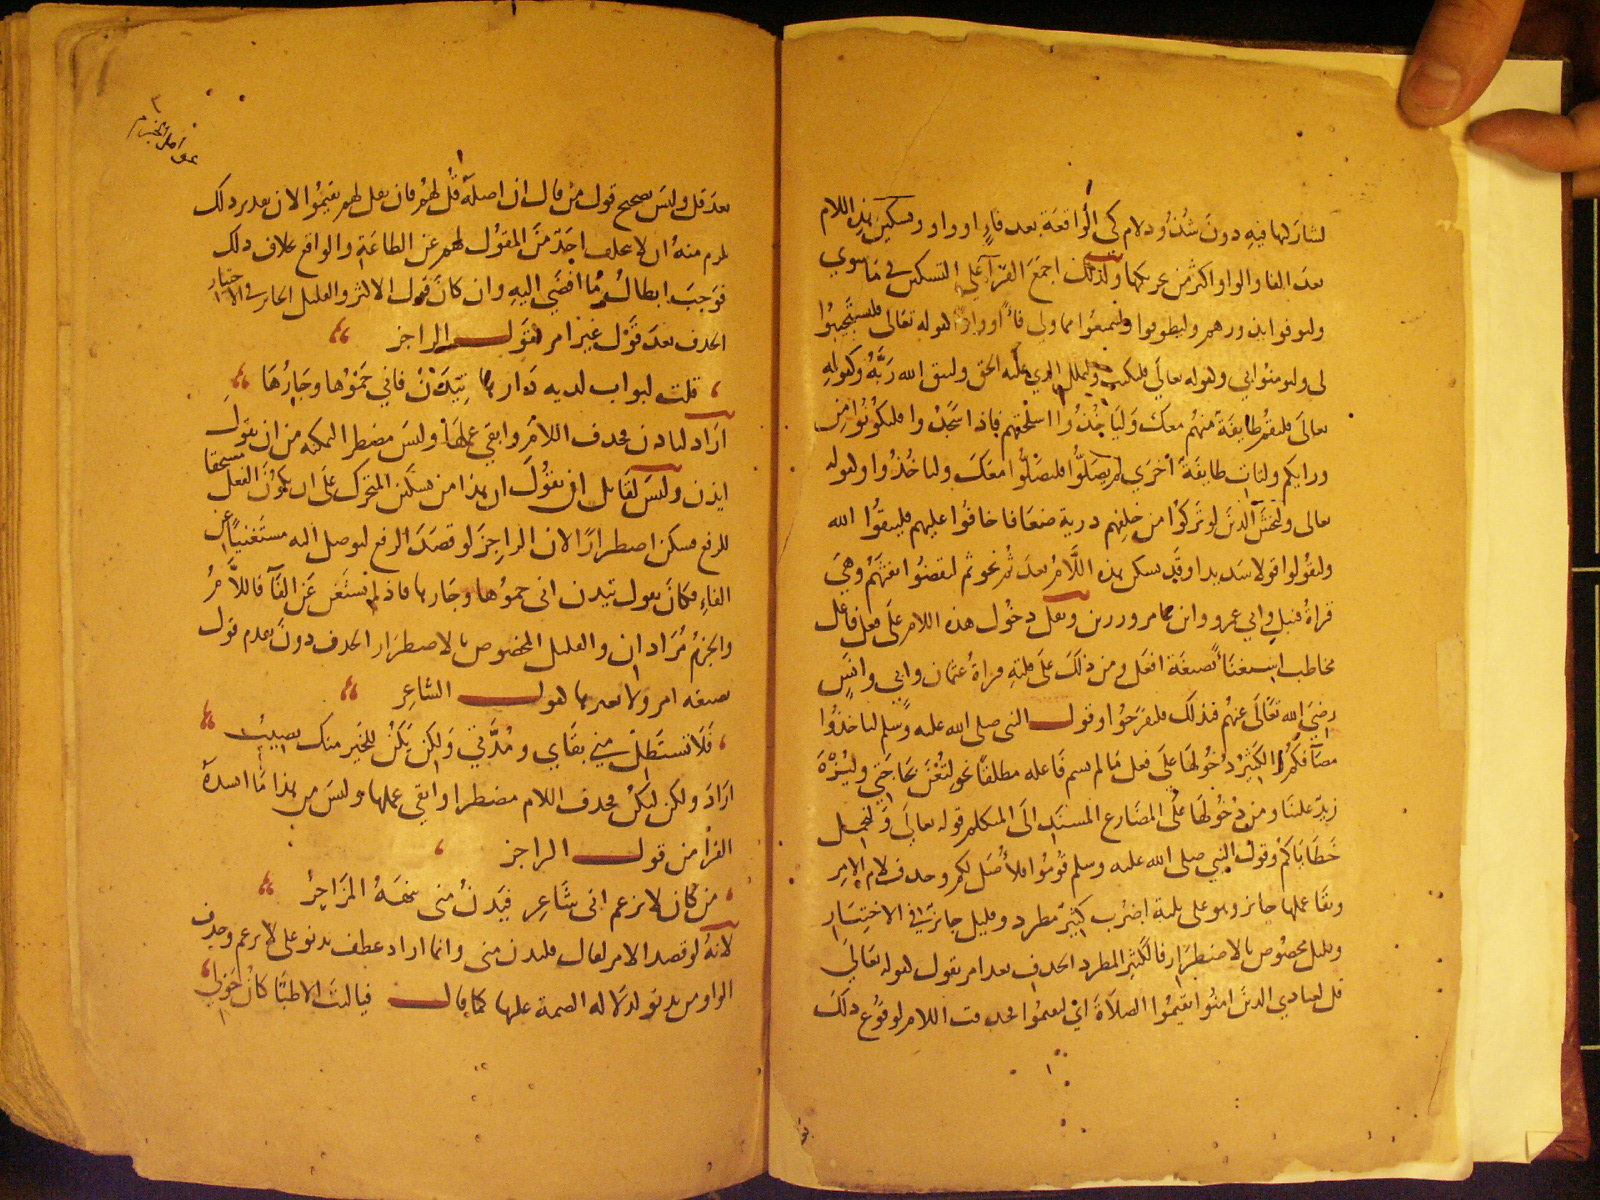 لشاركها فيه دون شذوذ ولام كي الواقعة بعد فاء او واو وتسكين هذه اللام
بعد الفا والواو اكثر من تحريكها ولذلك اجمع القرآ على التسكين في ما سوي
وليوفوا نذورهم وليطوفوا وليتمتعوا مما ولي فاءً او واوًا كقوله تعالى فليستجيبوا
لى وليومنوا بي وكقوله تعالى فليكتب وليملل الذي عليه الحق وليتق الله ربه وكقوله
تعالى فلتقم طايفة منهم معك وليأخذوا اسلحتهم فاذا سجدوا فليكونوا من
ورايكم ولتات طايفة أخري لم يصلوا فليصلوا معك ولياخذوا وكقوله
تعالى وليخش الذين لو تركوا من خلفهم ذرية ضعافا خافوا عليهم فليتقوا الله
وليقولوا قولا سديدا وقد تسكن هذه اللام بعد ثم نحو ثم ليقضوا تفثهم وهي
قراة قنبل وابي عمرو وابن عامر وورش ويقل دخول هذه اللام على فعل فاعل
مخاطب استغنأً بصيغة افعل ومن ذلك على قلته قراة عثمان وابي وانس
رضي الله تعالى عنهم فبذلك فلتفرحوا وقول النبى صلى الله عليه وسلم لتاخذوا
مصآفكم والكثير دخولها على فعل ما لم يسم فاعله مطلقا نحو لتعن بحاجتي وليزه
زيد علينا ومن دخولها على المضارع المسند الى المتكلم قوله تعالى ولنحمل
خطاياكم وقول النبي صلى الله عليه وسلم قوموا فلأصل لكم وحذف لام الامر
وبقا عملها جايز وهو على ثلثة اضرب كثير مطرد وقليل جايز في الاختيار
وقليل مخصوص بالاضطرار فالكثير المطرد الحذف بعد امر بقول كقوله تعالى
قل لعبادي الذين امنوا يقيموا الصلاة اي ليقيموا فحذفت اللام لوقوع ذلك
بعد قل وليس بصحيح قول من قال ان اصله قل لهم فان تقل لهم يقيموا لان تقدير ذلك
يلزم منه ان لا يتخلف احد من المقول لهم عن الطاعة والواقع بخلاف ذلك
فوجب ابطال ما افضى اليه وان كان قول الاكثر والقليل الجايز في الاختيار
الحذف بعد قول غير امر كقول الراجز
قلت لبواب لديه دارها تيذن فاني حموها وجارها
اراد لتاذن فحذف اللام وابقى عملها وليس مضطرا لتمكنه من ان يقول
ايذن وليس لقايل ان يقول ان هذا من تسكين المتحرك على ان يكون الفعل مستحقا
للرفع فسكن اضطرارا لان الراجز لو قصد الرفع لتوصل اليه مستغنيا عن
الفاء فكان يقول تيذن انى حموها وجارها فاذ لم يستغن عن الفآ فاللام
والجزم مرادان والقليل المخصوص بالاضطرار الحذف دون تقدم قول
بصيغة امر ولا بغيرها كقول الشاعر
فلا تستطل مني بقاي ومدتي ولكن يكن للخير منك نصيب
اراد ولكن ليكن فحذف اللام مضطرا وابقى عملها وليس من هذا ما انشده
الفرا من قول الراجز
من كان لا يزعم انى شاعر فيدن منى تنهه المزاجر
لانه لو قصد الامر لقال فليدن منى وانما اراد عطف يدنو على لا يزعم وحذف
الواو من يدنو لدلالة الضمة عليها كما قال فيا ليت الاطبا كان حولي